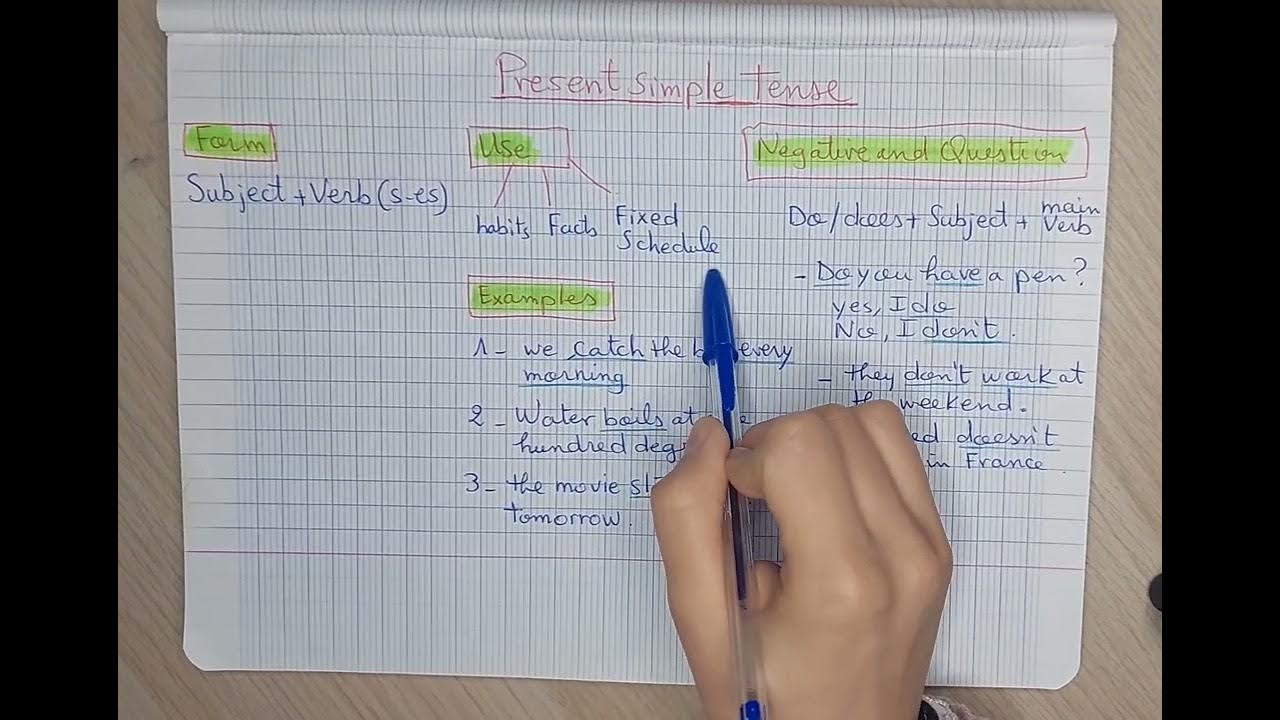 Present simple Tense
Form
Subject + Verb (s-es)
Use
habits Facts Fixed
Schedule
Examples
1 - we catch the every
morning
2 - Water boils at
hundred
3 - the movie
tomorrow.
Negative and Question
Do/does + Subject + main
Verb
- Do you have a pen?
yes, I do
No, I don't.
- they don't work at
weekend.
doesn't
in France.